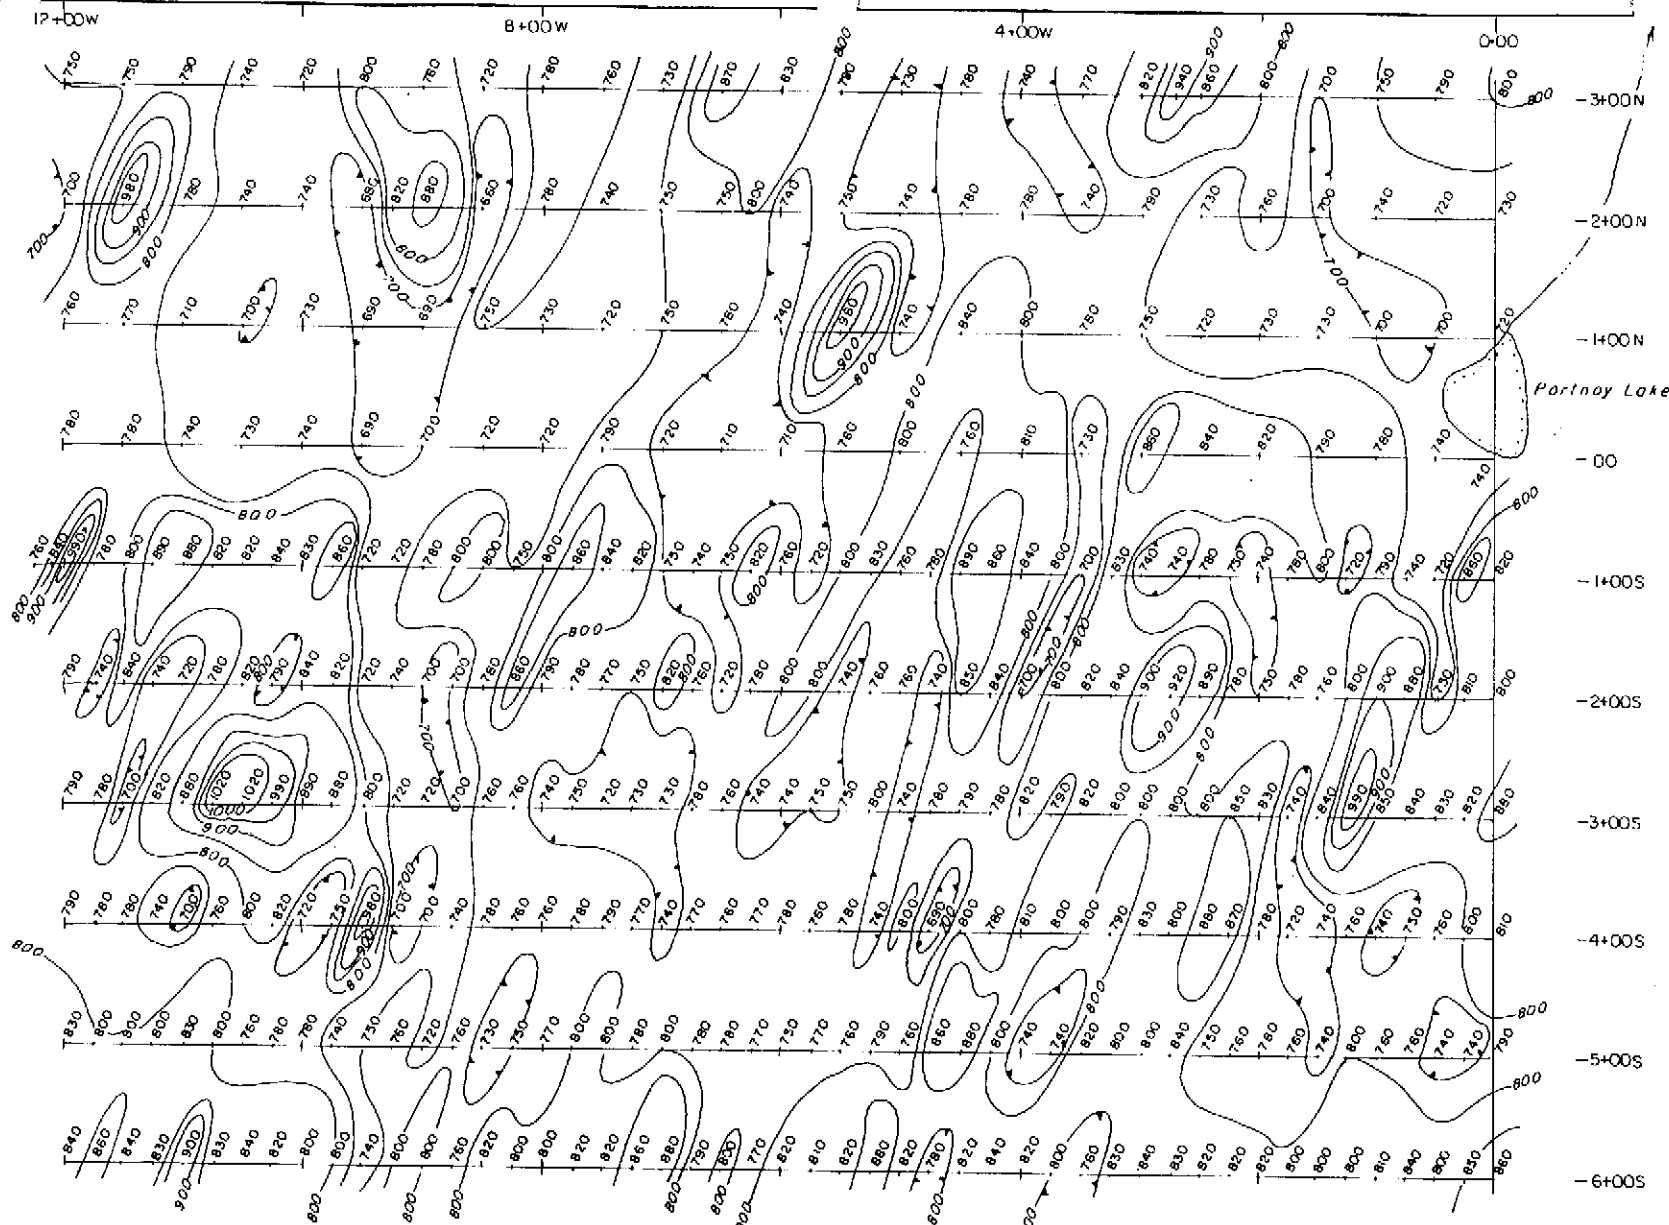 12+00W 8+00W 4+00W 0+00
750 750 790 740 720 800 780 720 780 760 730 870 830 790 730 780 740 770 820 940 860 800 700 750 790 800 -3+00N
700 980 780 740 740 680 820 880 660 780 740 750 750 800 740 750 740 780 780 740 790 730 760 700 740 720 730 -2+00N
760 770 710 700 730 690 690 750 730 720 750 780 740 980 740 840 800 780 750 720 730 730 700 700 720 -1+00N
Portnoy Lake
780 780 740 730 740 690 700 720 720 790 720 710 710 760 800 760 810 730 860 840 820 790 780 740 740 -00
760 840 990 780 800 890 880 820 820 840 830 860 720 720 780 800 800 750 800 860 840 820 730 740 750 820 760 720 800 830 760 780 890 860 840 800 700 830 740 740 780 750 740 780 800 720 790 740 720 860 820 -1+00S
790 740 840 740 720 780 820 800 790 840 820 720 740 700 700 780 860 790 780 770 750 820 800 760 720 780 800 800 740 760 760 740 850 840 700 800 820 840 900 920 890 780 750 780 760 800 900 880 730 810 800 -2+00S
790 780 700 820 880 1020 1020 990 890 880 800 720 720 700 760 760 740 750 720 730 730 780 760 740 740 750 750 800 740 780 790 780 820 790 820 800 800 800 800 850 830 740 840 990 850 840 830 820 880 -3+00S
790 780 780 740 700 760 800 820 720 750 980 700 700 740 780 760 780 780 790 770 740 770 760 770 780 760 780 740 800 690 800 780 810 800 800 790 830 800 880 870 780 720 740 760 740 750 760 800 810 -4+00S
830 800 900 800 830 800 760 780 780 740 750 760 720 760 730 750 770 800 800 780 800 780 780 770 750 770 760 790 760 860 880 800 740 740 820 800 800 840 750 760 780 760 740 800 760 760 740 740 790 -5+00S
840 860 840 830 900 830 840 820 800 800 740 800 800 760 820 800 800 820 820 860 880 790 830 770 820 810 820 880 820 780 820 840 820 800 760 830 840 830 820 820 820 800 800 800 810 840 800 850 860 -6+00S